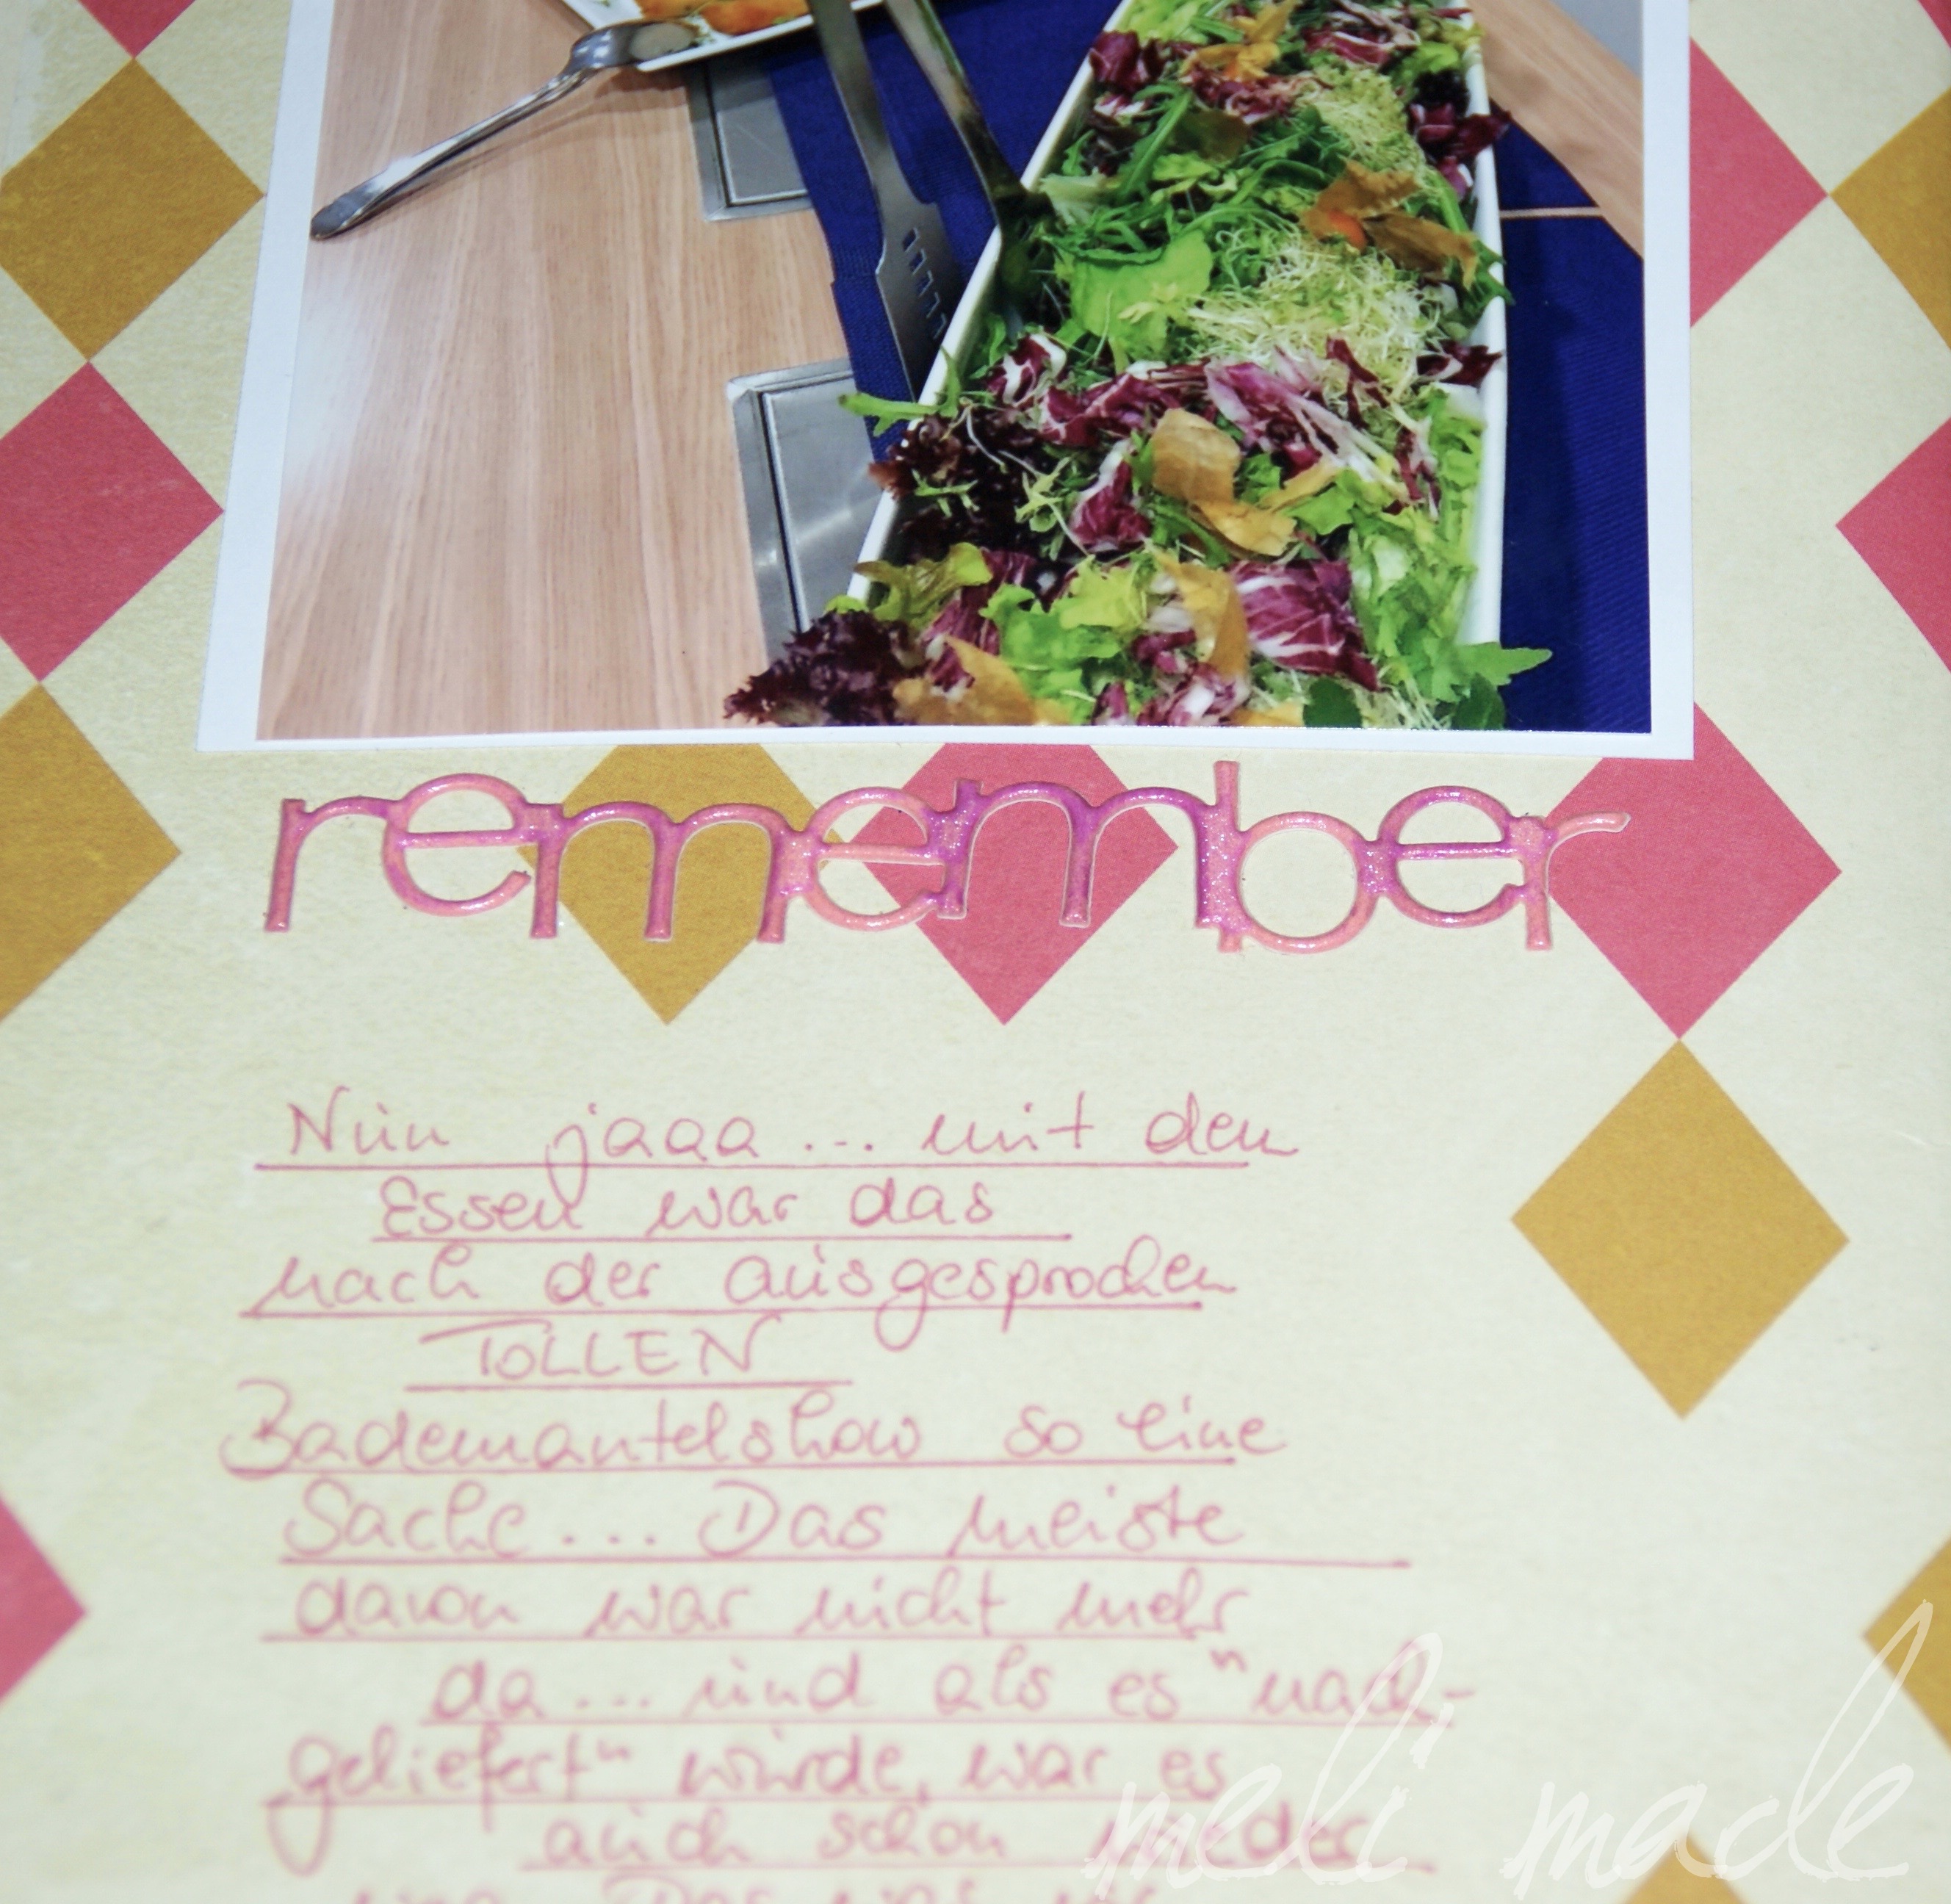 remember
Nun jaaa ... mit dem
Essen war das
nach der ausgesprochen
TOLLEN
Bademantelshow so eine
Sache ... Das meiste
davon war nicht mehr
da ... und als es "nach-
geliefert" wurde, war es
auch schon wieder
meli made